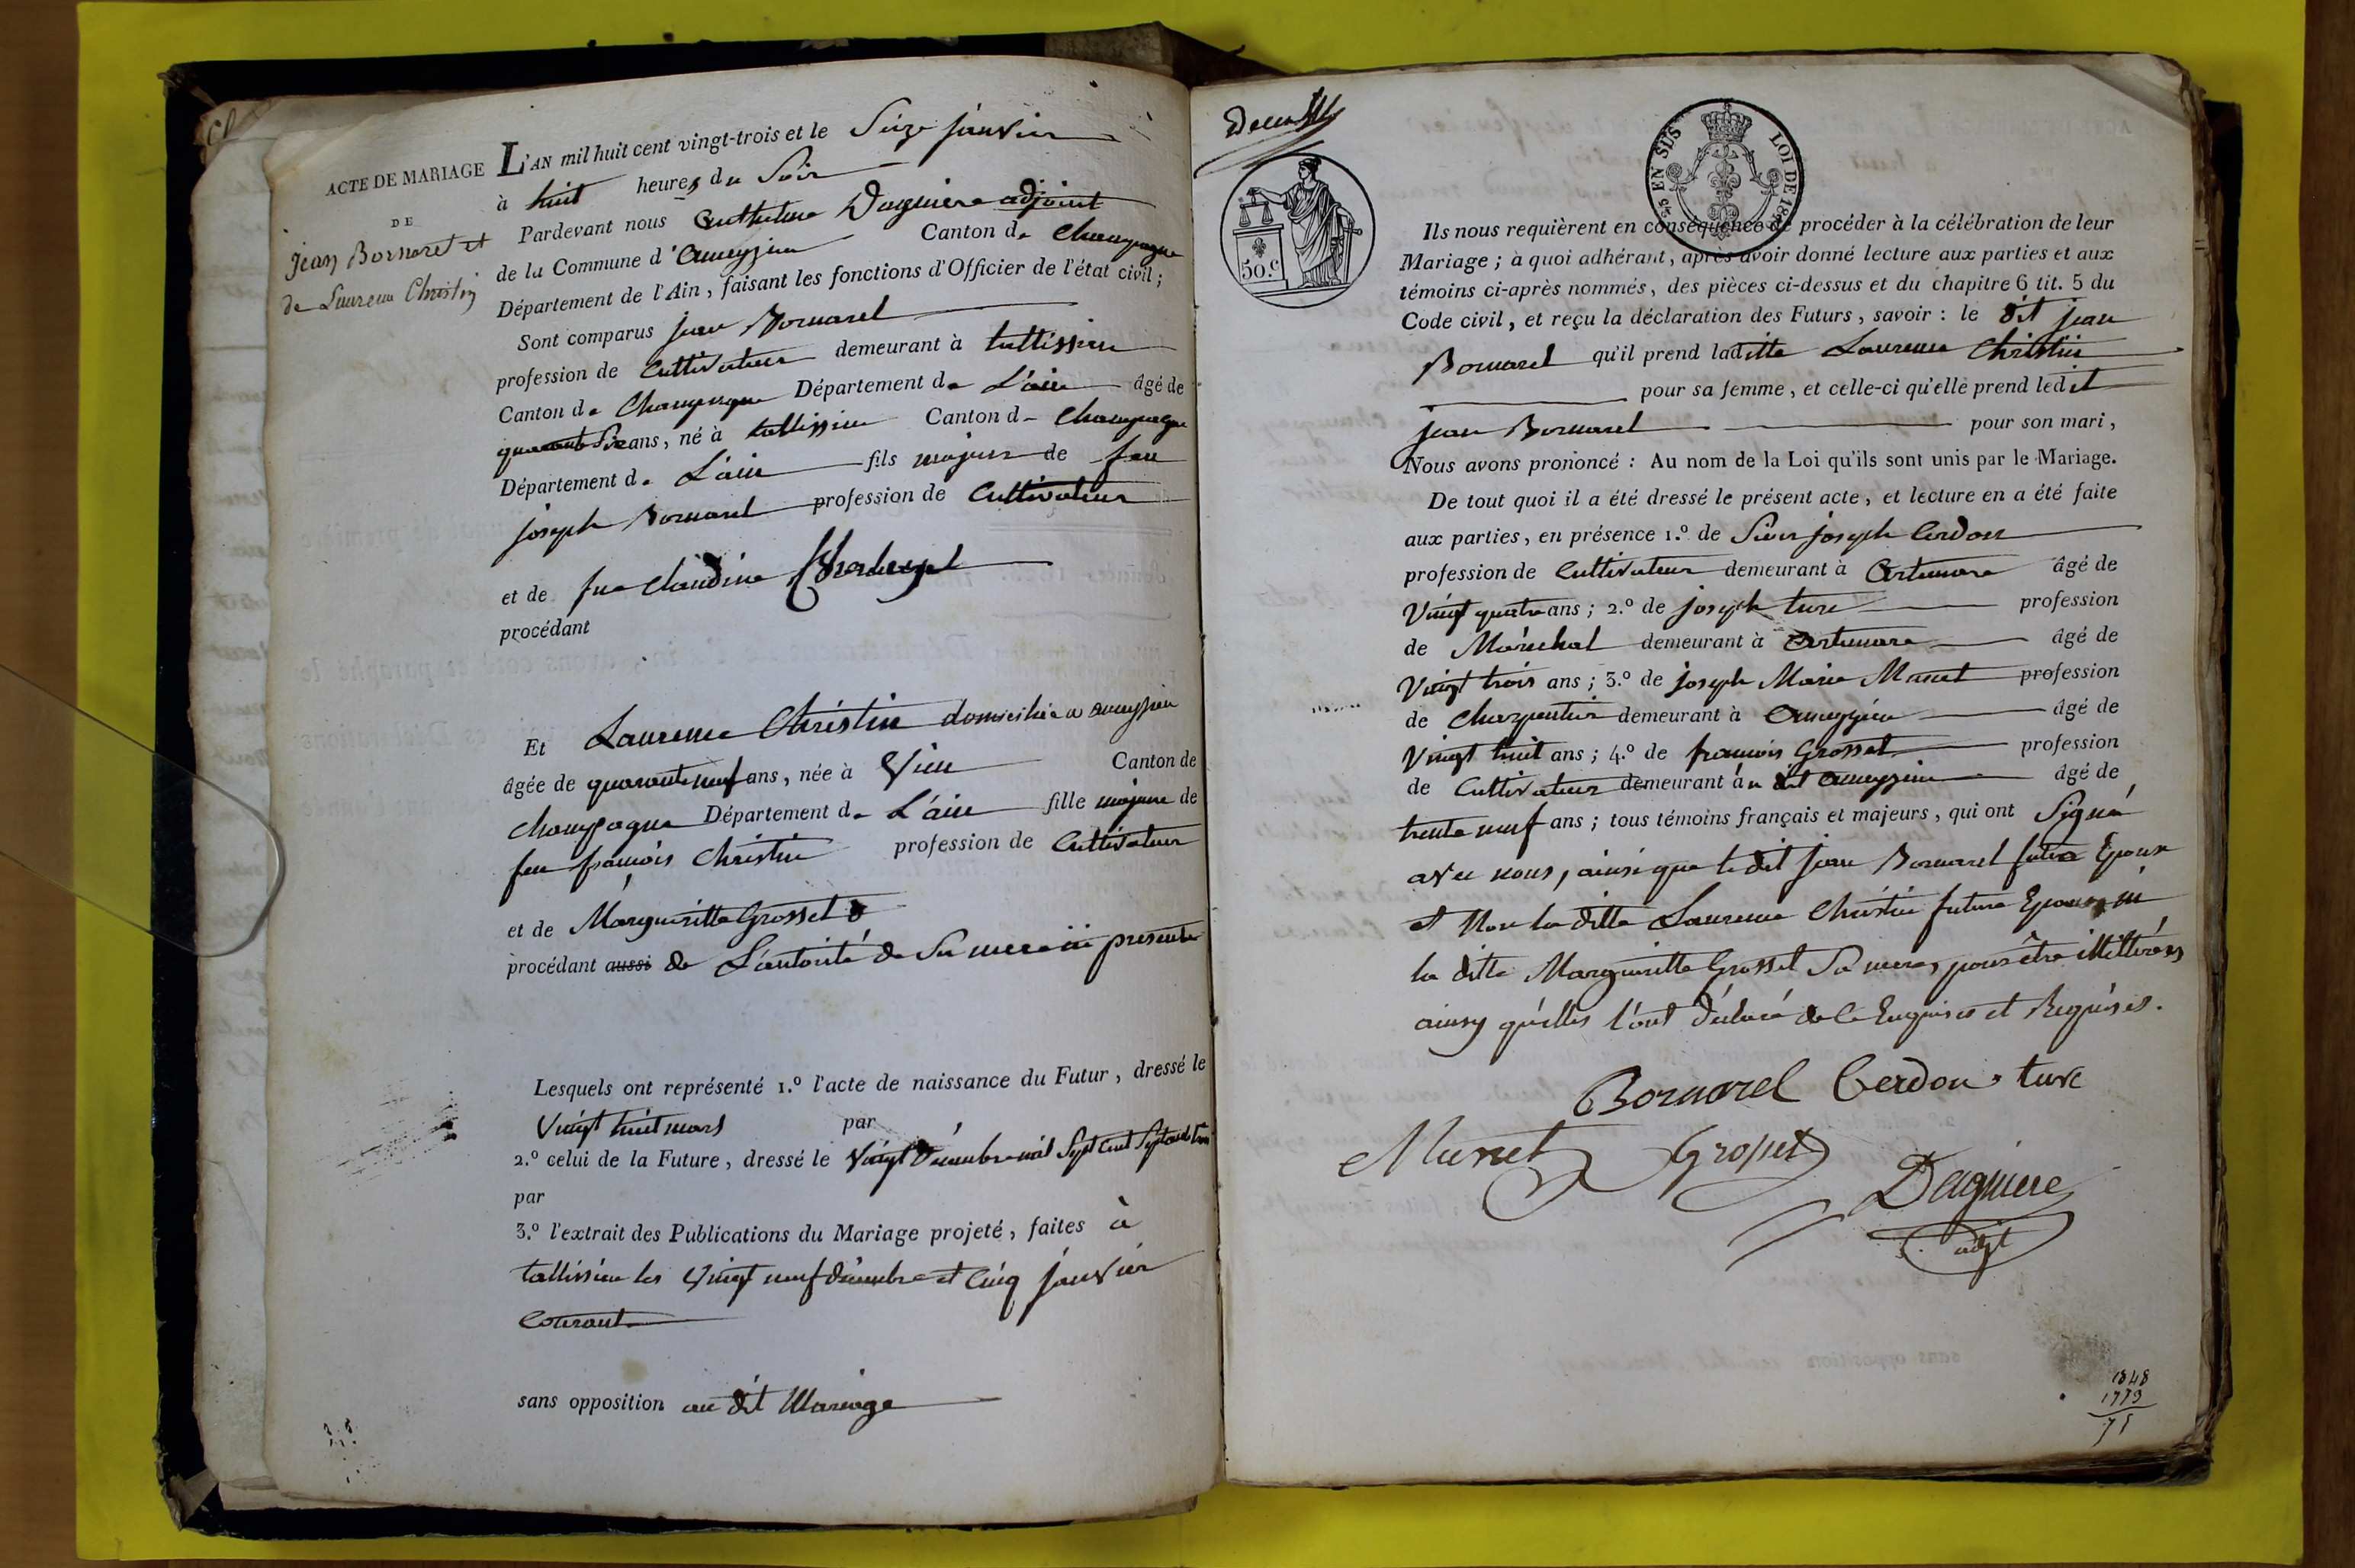 ACTE DE MARIAGE
DE
jean Bornarel et
de Laurence Christin
L'AN mil huit cent vingt-trois et le Seize janvier
à huit heures du Soir
Pardevant nous Anthelme Daguiere adjoint
de la Commune d'Ameyzieu Canton de Champagne
Département de l'Ain, faisant les fonctions d'Officier de l'état civil;
Sont comparus jean Bornarel
profession de Cultivateur demeurant à tallissieu
Canton de Champagne Département de L'ain âgé de
quarante Six ans, né à tallissieu Canton de Champagne
Département de L'ain fils majeur de feu
joseph Bornarel profession de Cultivateur
et de fue Claudine
procédant
Et Laurence Christin domiciliée a ameyzieu
âgée de quarante neuf ans, née à Vieu Canton de
Champagne Département de L'ain fille majeure de
feu françois Christin profession de Cultivateur
et de Margueritte Grosset
procédant aussi de L'autorité de Sa mere ici presente
Lesquels ont représenté 1.º l'acte de naissance du Futur, dressé le
Vingt huit mars par
2.º celui de la Future, dressé le Vingt Décembre mil Sept Cent Septante trois
par
3.º l'extrait des Publications du Mariage projeté, faites à
tallissieu les Vingt neuf décembre et Cinq janvier
Courant
sans opposition au dit Mariage
50.C
EN SUS
LOI DE
Ils nous requièrent en conséquence de procéder à la célébration de leur
Mariage; à quoi adhérant, après avoir donné lecture aux parties et aux
témoins ci-après nommés, des pièces ci-dessus et du chapitre 6 tit. 5 du
Code civil, et reçu la déclaration des Futurs, savoir: le dit jean
Bornarel qu'il prend laditte Laurence Christin
pour sa femme, et celle-ci qu'elle prend ledit
jean Bornarel pour son mari,
Nous avons prononcé: Au nom de la Loi qu'ils sont unis par le Mariage.
De tout quoi il a été dressé le présent acte, et lecture en a été faite
aux parties, en présence 1.º de Sieur joseph Cerdon
profession de Cultivateur demeurant à Artemare âgé de
Vingt quatre ans; 2.º de joseph ture profession
de Maréchal demeurant à Artemare âgé de
Vingt trois ans; 3.º de joseph Marie Munet profession
de Charpentier demeurant à Ameyzieu âgé de
Vingt huit ans; 4.º de françois Grosset profession
de Cultivateur demeurant au dit Ameyzieu âgé de
trente neuf ans; tous témoins français et majeurs, qui ont Signé
avec nous, ainsi que le dit jean Bornarel futur Epoux
et Non la ditte Laurence Christin future Epouse, ni
la ditte Margueritte Grosset Sa mere, pour être illittérées
ainsy qu'elles l'ont déclaré de ce Enquises et Requises.
Bornarel Cerdon ture
Munet Grosset
Daguiere
adjt
1848
1773
75